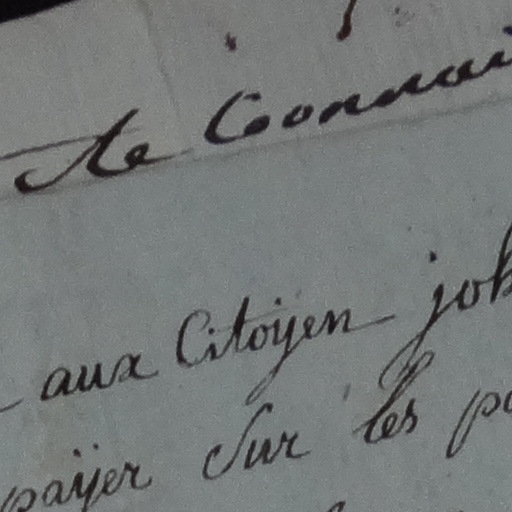 Le Connai
aux Citoyen job
payer Sur les po